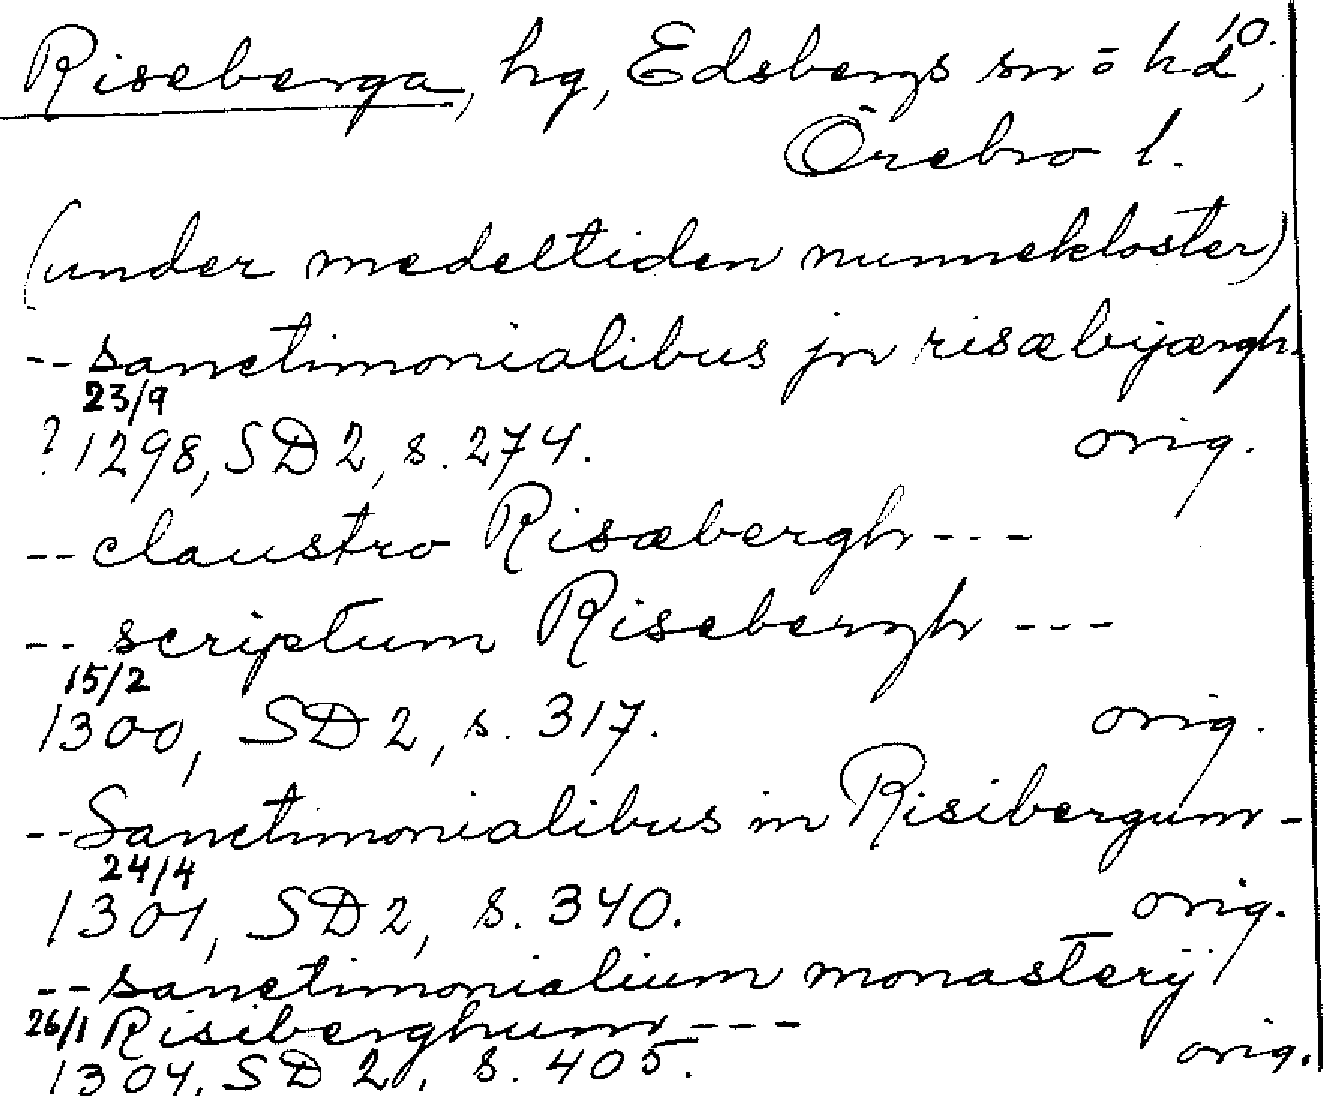 10.
Riseberga, hg, Edsbergs sn o hd,
Örebro l.
(under medeltiden nunnekloster)
-- sanctimonialibus jn risæbijærgh.
23/9
? 1298, SD 2, s. 274. orig.
-- claustro Risæbergh ---
-- scriptum Risebergh ---
15/2
1300, SD 2, s. 317. orig.
-- Sanctimonialibus in Risibergum -
24/4
1301, SD 2, s. 340. orig.
-- sanctimonialium monasterij
26/1 Risiberghum ---
1304, SD 2, s. 405. orig.